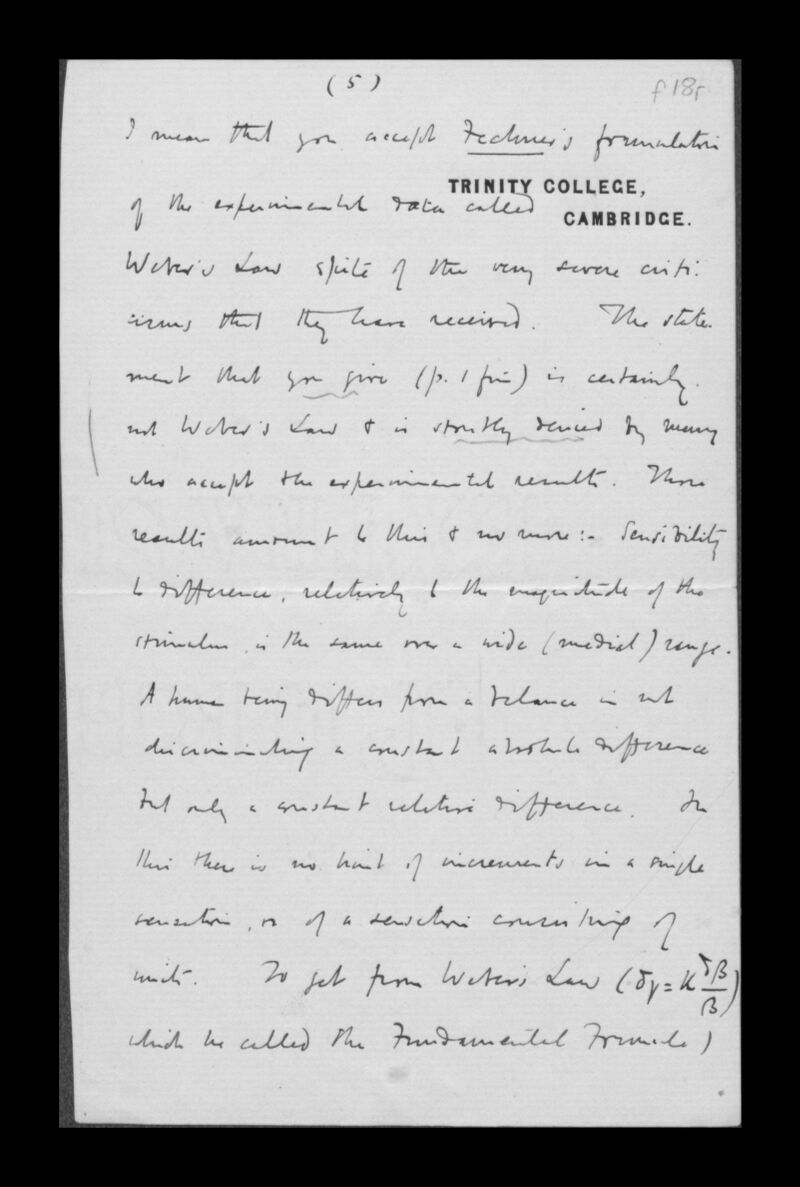 (5)
f18r
I mean that you accept Fechner's formulation
TRINITY COLLEGE,
CAMBRIDGE.
of the experimental data called
Weber's Law spite of the very severe criti-
cisms that they have received. The state-
ment that you give (p. 1 fin) is certainly
not Weber's Law & is strictly denied by many
who accept the experimental results. These
results amount to this & no more:- Sensibility
to difference, relatively to the magnitude of the
stimulus, is the same over a wide (medial) range.
A human being differs from a balance in not
discriminating a constant absolute difference
but only a constant relative difference. In
this there is no hint of increments in a single
sensation, or of a sensation consisting of
units. To get from Weber's Law (δγ = K δβ/β)
which he called the Fundamental Formula)